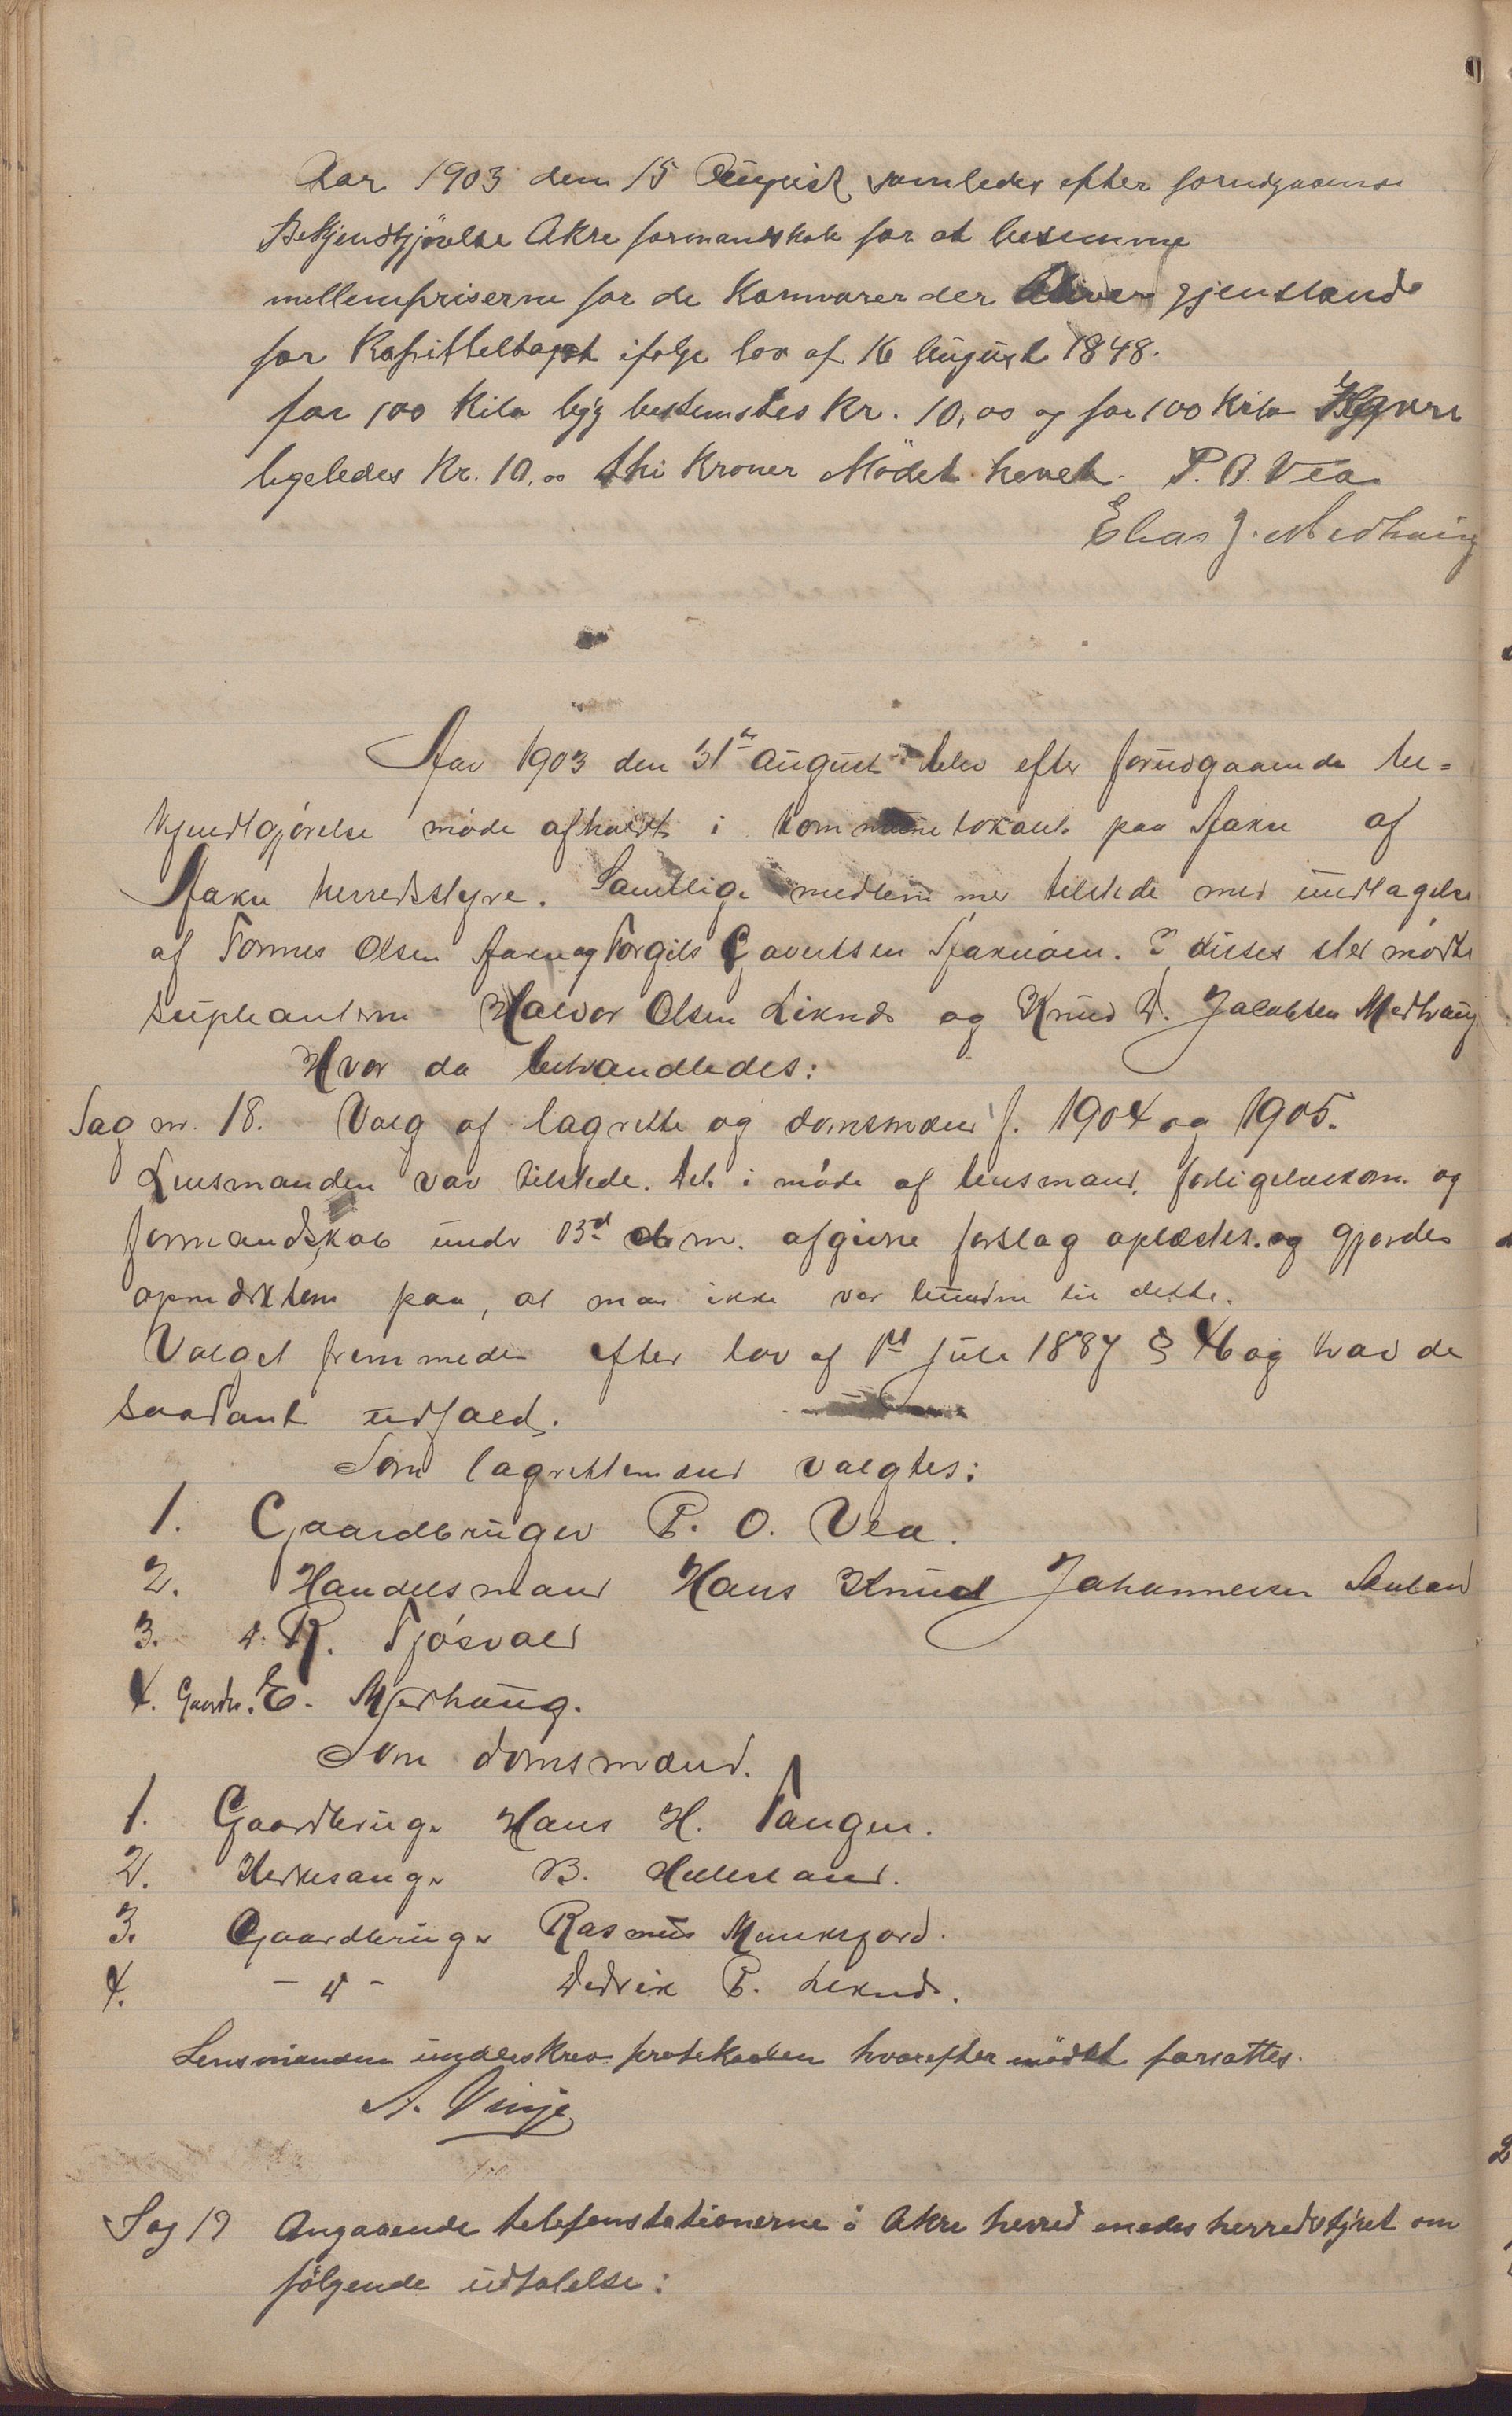 Aar 1903 den 15 August samledes efter forudgaaende
Bekjendtgjörelse Akre formandskab for at bestemme
mellempriserne for de Kornvarer der gjenstand
for Kapitteltagst ifølge lov af 16 August 1848.
for 100 Kilo byg bestemtes Kr. 10,00 og for 100 Kilo Havre
ligeledes Kr. 10,00 thi Kroner Mödet hevet. P. O. Vea
Elias J. Medhaug
Aar 1903 den 31te August blev efter forudgaaende be-
kjendtgjørelse møde afholdt i kommunelokalet paa Aakre af
Aakre herredsstyre. Samtlige medlemmer tilstede med undtagelse
af Tonnes Olsen Aakre og Torgils Govertsen Aakreøen. I disses sted mødte
supleanterne Halvor Olsen Liknes og Knud D. Jakobsen Medhaug.
Hvor da behandledes:
Sag nr. 18. Valg af lagrette og domsmænd f. 1904 og 1905.
Lensmanden var tilstede. Det i møde af lensmand, forligelseskom. og
formandskab under 13d ds m. afgivne forslag oplæstes og gjordes
opmærksom paa, at man ikke var bunden til dette.
Valget fremmedes efter lov af 1st Juli 1887 § 46 og havde
saadant udfald.
Som lagrettemænd valgtes:
1. Gaardbruger P. O. Vea.
2. Handelsmand Hans Knud Johannesen
3. d. R. Tjøsvold
4. Gaardbr. E. Medhaug.
Som domsmænd.
1. Gaardbruger Hans H. Tangen.
2. Kirkesanger B. Helleland.
3. Gaardbruger Rasmus Munkejord.
4. - d - Didrik P. Liknes.
Lensmanden underskrev protokollen hvorefter mödet forsattes.
A. Vinje
Sag 19 Angaaende telefonstationerne i Akre herred enedes herredstyret om
fölgende udtalelse: